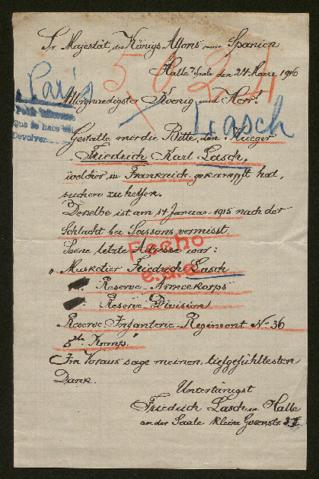 Sr Majestät, des Königs Alfons von Spanien
Halle Saale den 24 März 1916
Allergnädigster Koenig und Herr.
Paris
Lasch
Gestatte mir die Bitte, den Krieger
Friedrich Karl Lasch,
welcher in Frankreich gekämpft hat,
suchen zu helfen.
Derselbe ist am 14 Januar 1915 nach der
Schlacht bei Soissons vermisst.
Seine letzte Adresse war:
Fecho
„Musketier Friedrich Lasch
Reserve Armeekorps
Reserve Division
Reserve Infanterie Regiment No 36
5te Komp."
Im Voraus sage meinen tiefgefühltesten
Dank.
Untertänigst
Friedrich Lasch in Halle
an der Saale kleine